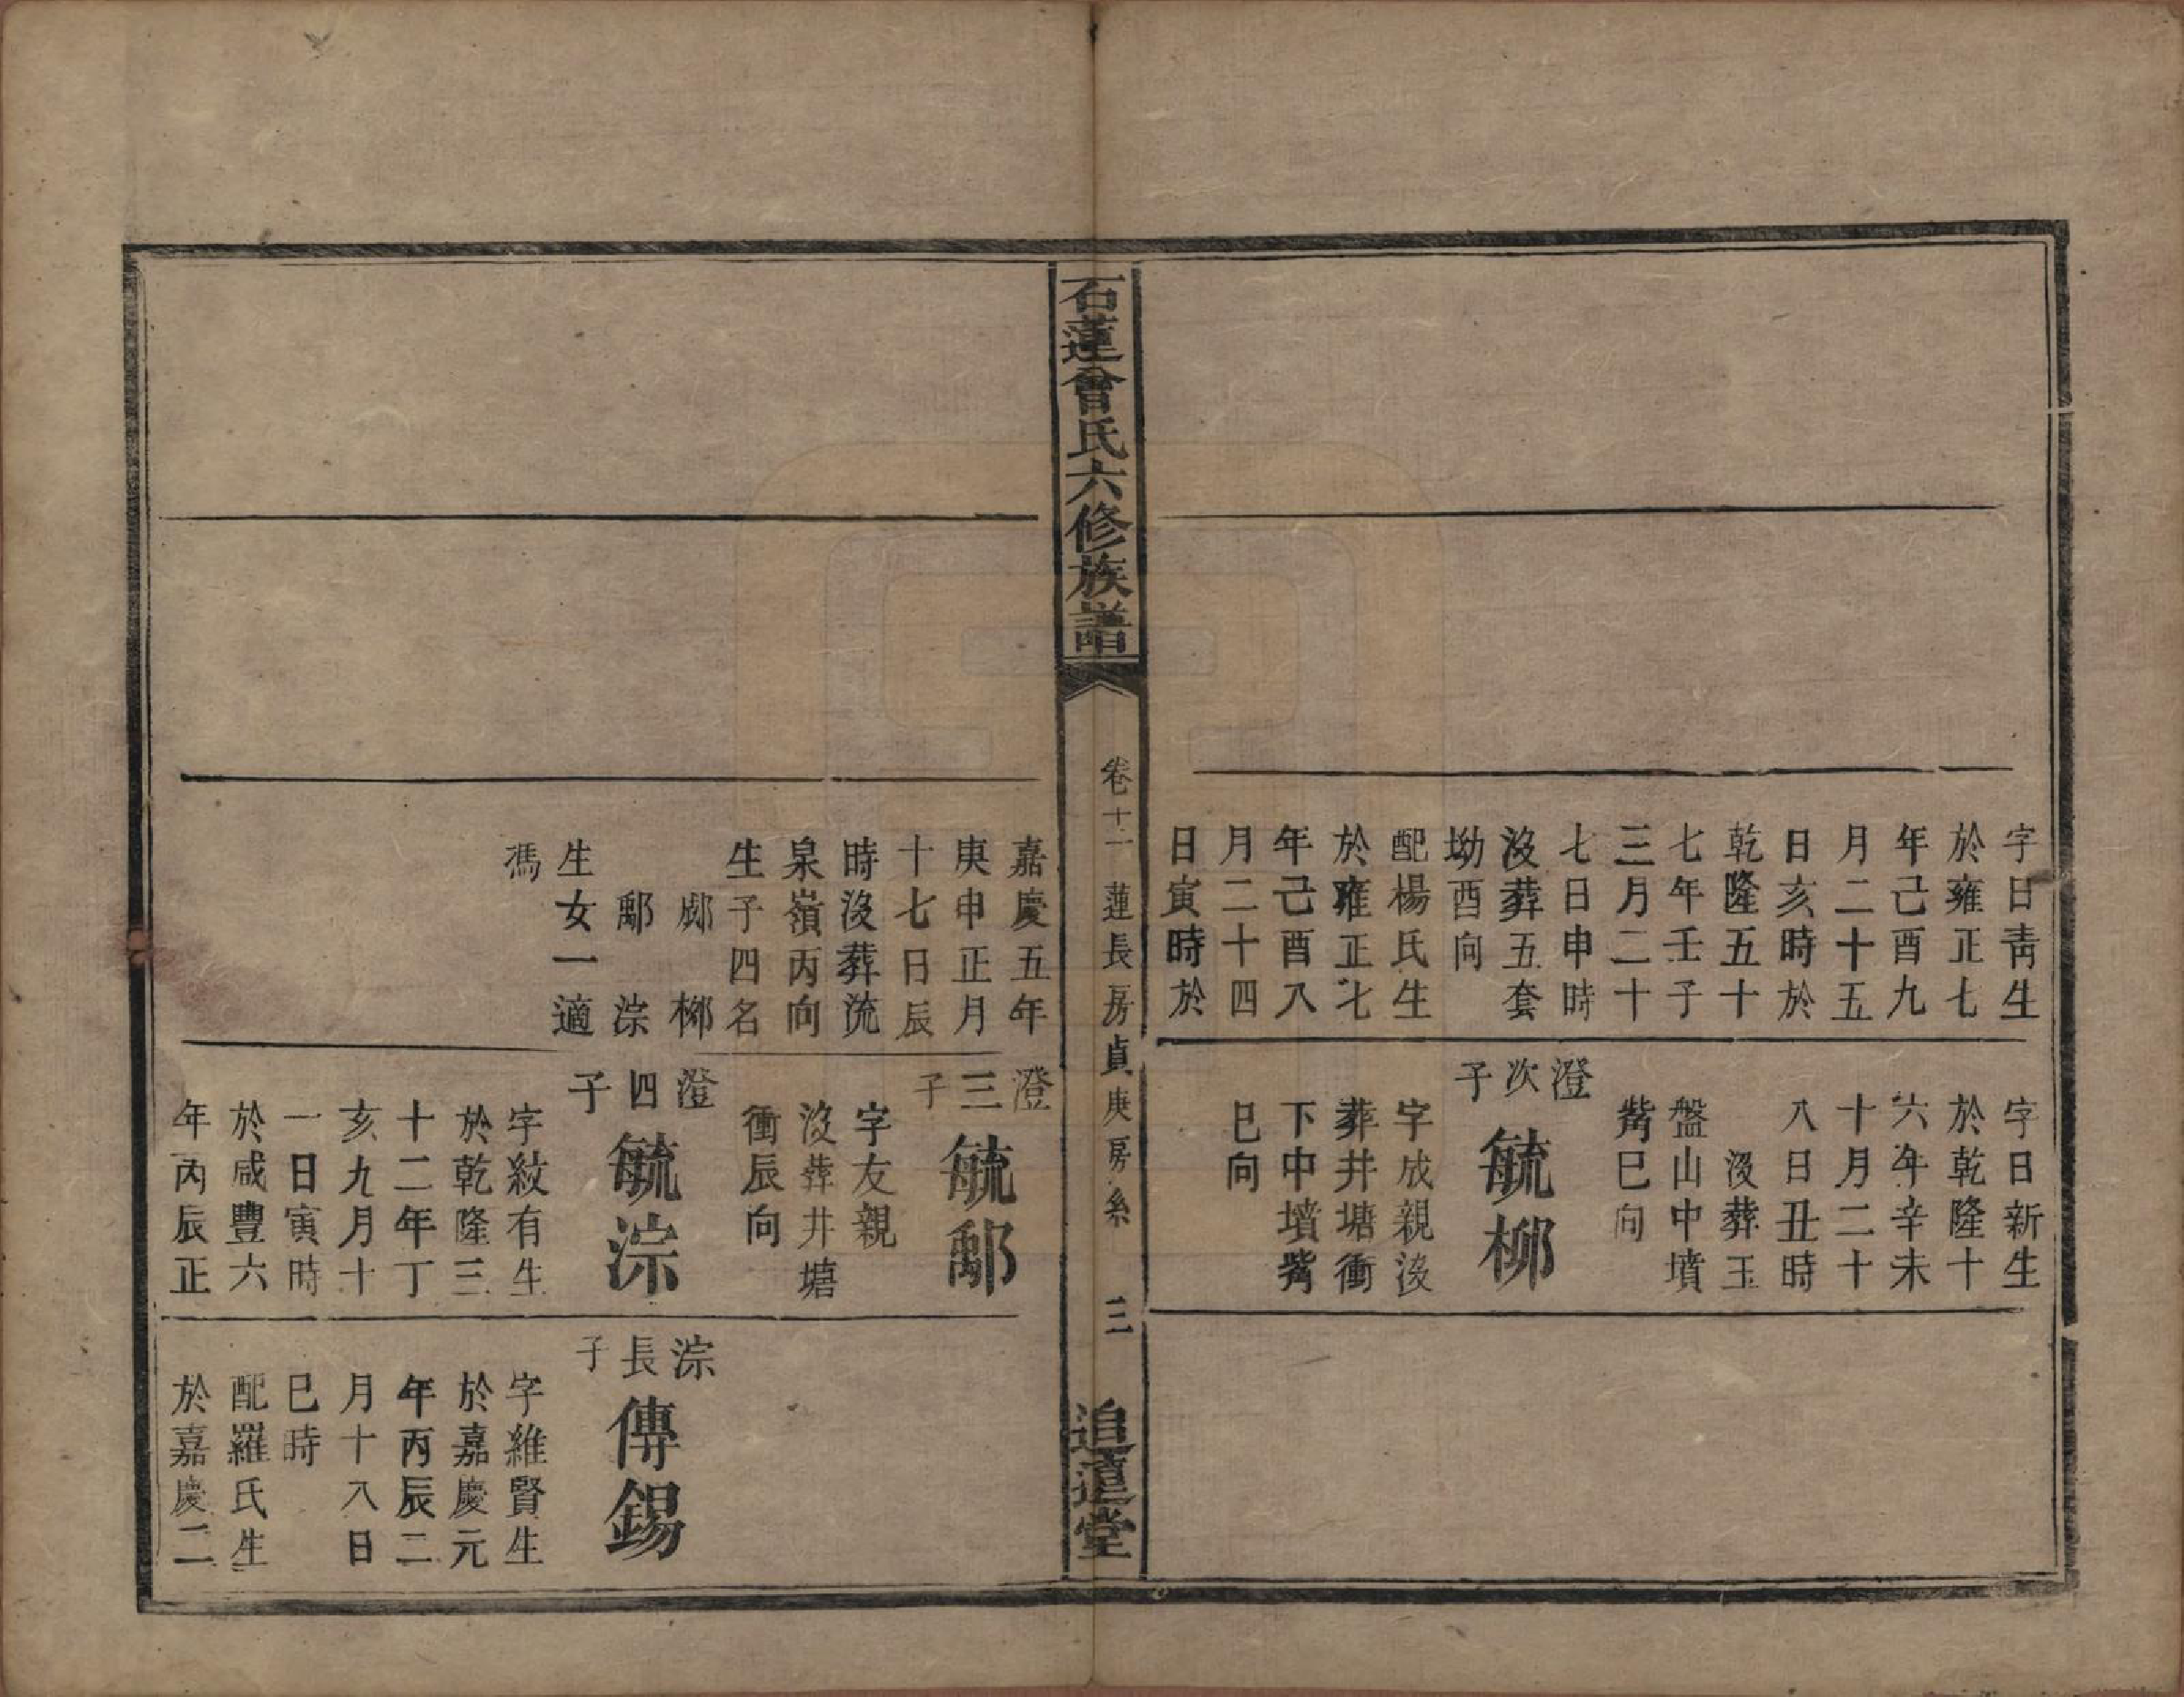 字日青生
於雍正七
年己酉九
月二十五
日亥時於
乾隆五十
七年壬子
三月二十
七日申時
沒葬五套
坳酉向
配楊氏生
於雍正七
年己酉八
月二十四
日寅時於
字日新生
於乾隆十
六年辛未
十月二十
八日丑時
沒葬玉
盤山中墳
觜巳向
澄次子
毓梛
字成親沒
葬井塘衝
下中墳觜
巳向
石蓮曾氏六修族譜
卷十一
蓮長房貞庚房系
三
追遠堂
嘉慶五年
庚申正月
十七日辰
時沒葬流
泉嶺丙向
生子四名
梛
鄅 淙
生女一適
馮
澄三子
毓鄅
字友親
沒葬井塘
衝辰向
澄四子
毓淙
字紋有生
於乾隆三
十二年丁
亥九月十
一日寅時
於咸豐六
年丙辰正
淙長子
傳錫
字維賢生
於嘉慶元
年丙辰二
月十八日
巳時
配羅氏生
於嘉慶二